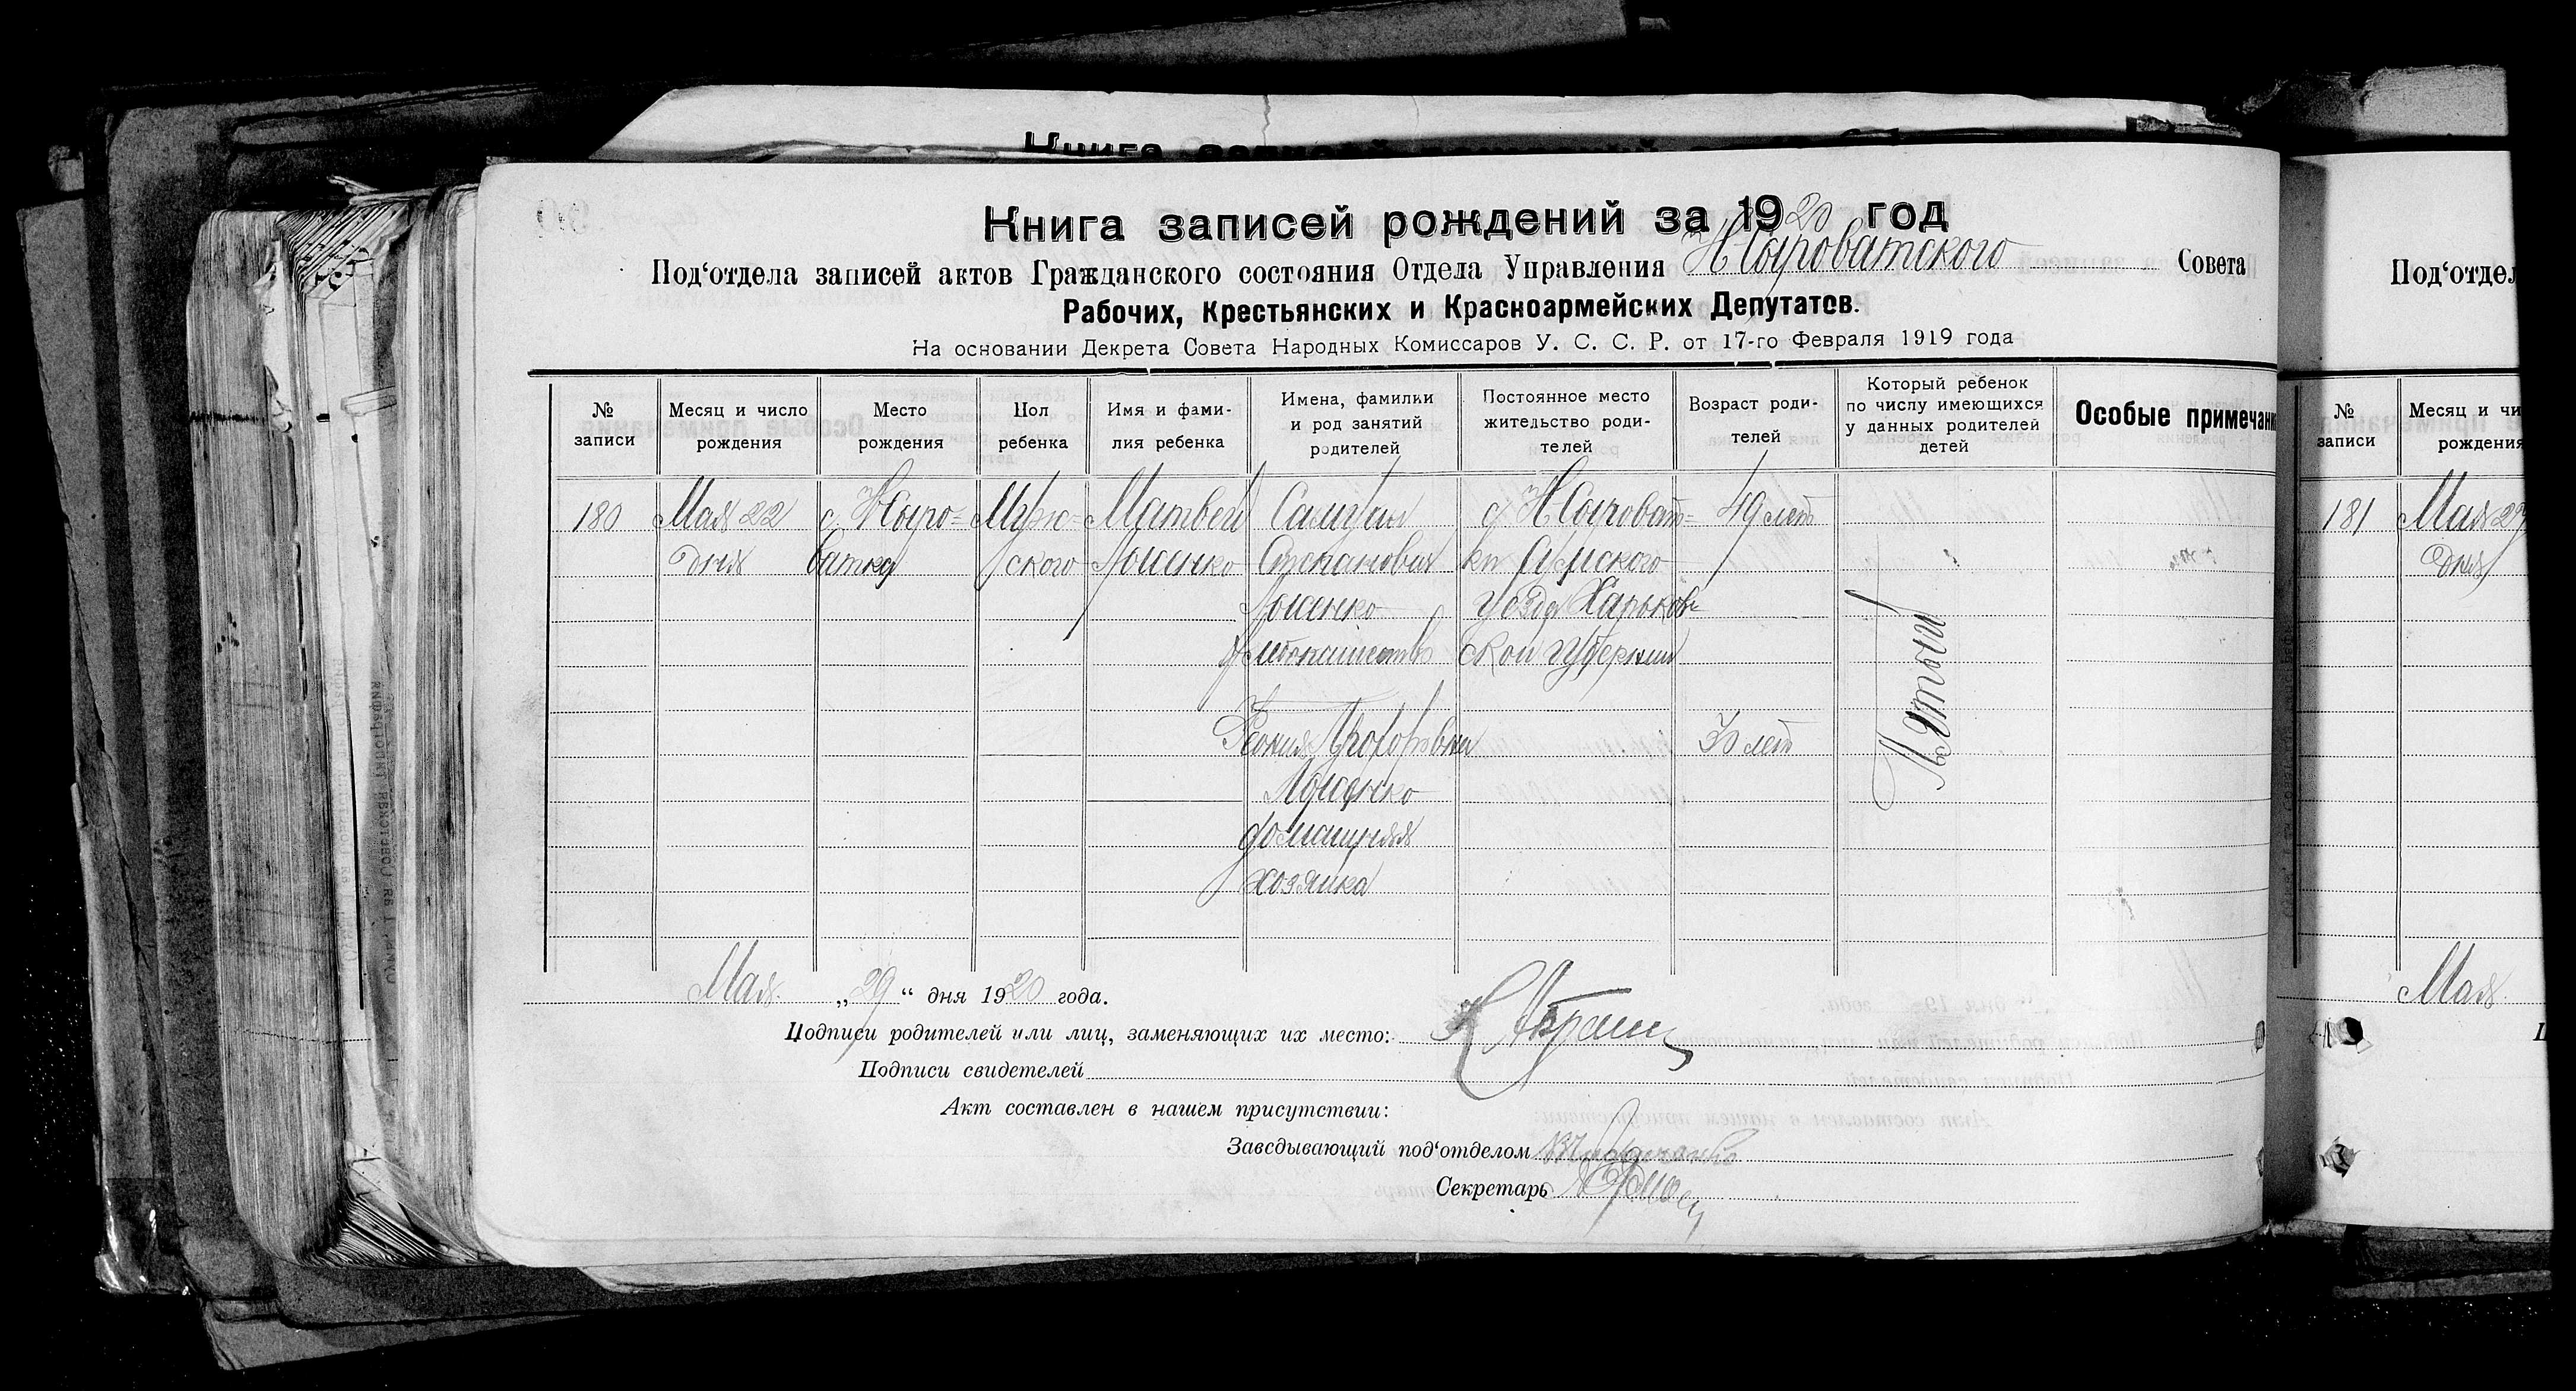 Книга записей рождений за 1920 год
Под'отдела записей актов Гражданского состояния Отдела Управления Н Сыроватского Совета
Рабочих, Крестьянских и Красноармейских Депутатов.
На основании Декрета Совета Народных Комиссаров У. С. С. Р. от 17-го Февраля 1919 года
№ записи
Месяц и число рождения
Место рождения
Пол ребенка
Имя и фамилия ребенка
Имена, фамилии и род занятий родителей
Постоянное место жительство родителей
Возраст родителей
Который ребенок по числу имеющихся у данных родителей детей
Особые примечан
180
Мая 22
дня
с. Н Сыро=
ватка
Муж=
ского
Матвей
Самуил
Степанович
хлебопашество
Прохоровна
домашняя
хозяйка
с Н Сыроват=
ки Сумского
уезда Харьков=
ской губернии
49 лет
30 лет
Пятый
Мая „29“ дня 1920 года.
Подписи родителей или лиц, заменяющих их место:
Подписи свидетелей
Акт составлен в нашем присутствии:
Заведывающий под'отделом
Секретарь
Под'отдел
№ записи
Месяц и чи
рождения
181
Мая
дня
Мая